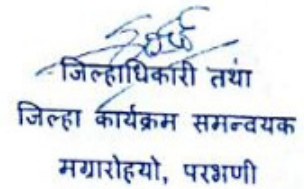 जिल्हाधिकारी तथा
जिल्हा कार्यक्रम समन्वयक
मग्रारोहयो, परभणी